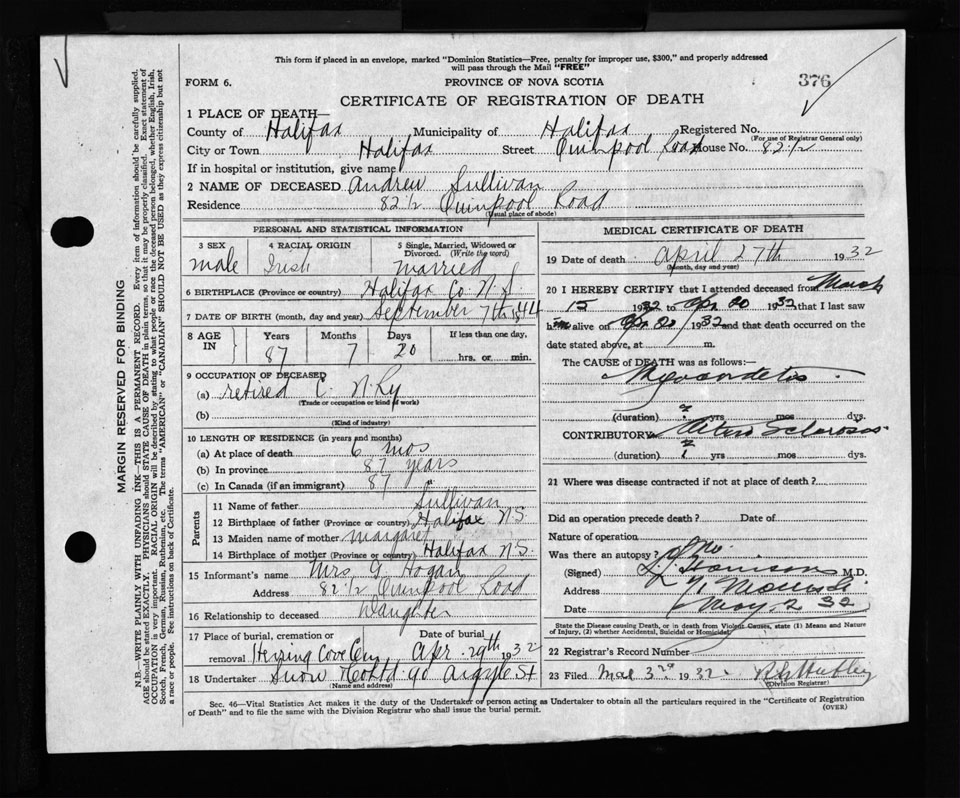 This form if placed in an envelope, marked "Dominion Statistics—Free, penalty for improper use, $300," and properly addressed
will pass through the Mail "FREE"
FORM 6.
PROVINCE OF NOVA SCOTIA
376
CERTIFICATE OF REGISTRATION OF DEATH
1 PLACE OF DEATH—
County of Halifax Municipality of Halifax Registered No.
(For use of Registrar General only)
City or Town Halifax Street Quinpool Road House No. 82 1/2
If in hospital or institution, give name
2 NAME OF DECEASED Andrew Sullivan
Residence 82 1/2 Quinpool Road
(Usual place of abode)
PERSONAL AND STATISTICAL INFORMATION
3 SEX
male
4 RACIAL ORIGIN
Irish
5 Single, Married, Widowed or
Divorced. (Write the word)
Married
6 BIRTHPLACE (Province or country) Halifax Co. N.S.
7 DATE OF BIRTH (month, day and year) September 7th 1844
8 AGE
IN
Years Months Days If less than one day,
87 7 20 hrs. or min.
9 OCCUPATION OF DECEASED
(a) retired C. N. Ry
(Trade or occupation or kind of work)
(b)
(Kind of industry)
10 LENGTH OF RESIDENCE (in years and months)
(a) At place of death 6 mos
(b) In province 87 years
(c) In Canada (if an immigrant) 87 "
Parents
11 Name of father Sullivan
12 Birthplace of father (Province or country) Halifax N.S.
13 Maiden name of mother Margaret
14 Birthplace of mother (Province or country) Halifax N.S.
15 Informant's name Mrs G. Hogan
Address 82 1/2 Quinpool Road
16 Relationship to deceased Daughter
17 Place of burial, cremation or
removal Herring Cove Cem
Date of burial
Apr. 29th 1932
18 Undertaker Snow & Co Ltd 90 Argyle St
(Name and address)
MEDICAL CERTIFICATE OF DEATH
19 Date of death April 27th 1932
(Month, day and year)
20 I HEREBY CERTIFY that I attended deceased from March
15 1932 to Apr 20 1932, that I last saw
him alive on Apr 20/1932 and that death occurred on the
date stated above, at m.
The CAUSE of DEATH was as follows:—
Myocardetis
(duration) ? yrs mos dys.
CONTRIBUTORY Arterio Sclerosis
(duration) ? yrs mos dys.
21 Where was disease contracted if not at place of death?
Did an operation precede death? Date of
Nature of operation
Was there an autopsy? No.
(Signed) M.D.
Address 71 Morris St
Date May 2 32
State the Disease causing Death, or in death from Violent Causes, state (1) Means and Nature
of Injury, (2) whether Accidental, Suicidal or Homicidal
22 Registrar's Record Number
23 Filed 3rd 1932
(Division Registrar)
Sec. 46—Vital Statistics Act makes it the duty of the Undertaker or person acting as Undertaker to obtain all the particulars required in the "Certificate of Registration
of Death" and to file the same with the Division Registrar who shall issue the burial permit.
(OVER)
MARGIN RESERVED FOR BINDING
N.B.—WRITE PLAINLY WITH UNFADING INK—THIS IS A PERMANENT RECORD. Every item of information should be carefully supplied.
AGE should be stated EXACTLY. PHYSICIANS should STATE CAUSE OF DEATH in plain terms, so that it may be properly classified. Exact statement of
OCCUPATION is very important. RACIAL ORIGIN will be described by stating to what people or race the deceased person belonged, whether English, Irish,
Scotch, French, German, Russian, Ruthenian, etc. The terms "AMERICAN" or "CANADIAN" SHOULD NOT BE USED as they express citizenship but not
a race or people. See instructions on back of Certificate.